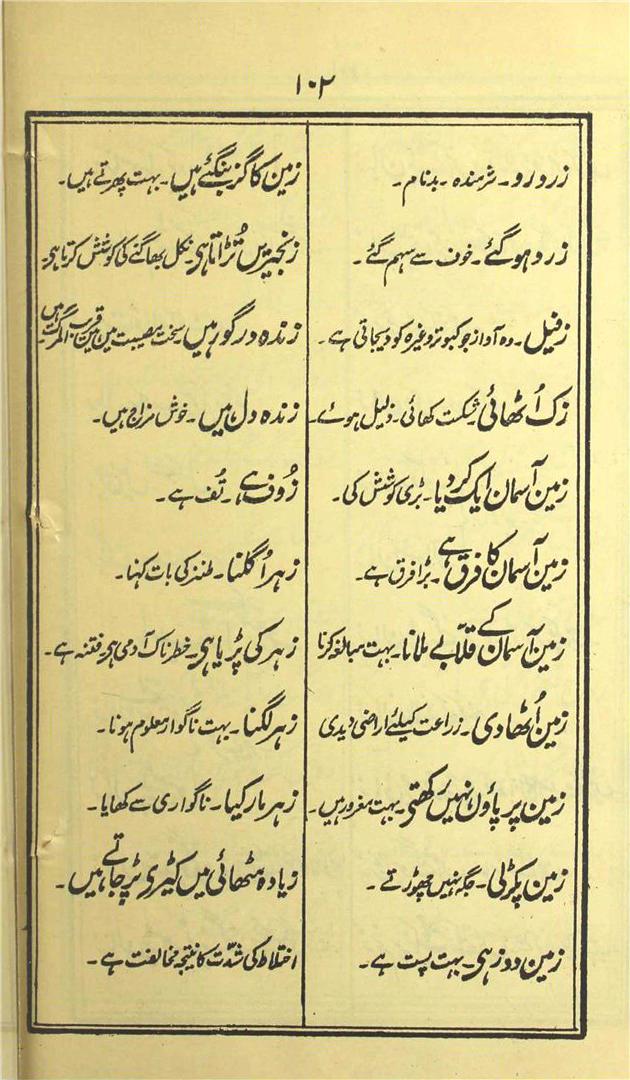 ۱۰۲
زرد رو۔ شرمندہ۔ بدنام۔
زرد ہو گئے۔ خوف سے سہم گئے۔
زفیل۔ وہ آواز جو کبوتر وغیرہ کو دیجاتی ہے۔
زک اُٹھائی۔ شکست کھائی۔ ذلیل ہوئے۔
زمین آسمان ایک کر دیا۔ بڑی کوشش کی۔
زمین آسمان کا فرق ہے۔ بڑا فرق ہے۔
زمین آسمان کے قلابے ملانا۔ بہت مبالغہ کرنا
زمین اُٹھا دی۔ زراعت کیلئے اراضی دیدی
زمین پر پاؤں نہیں رکھتی۔ بہت مغرور ہیں۔
زمین پکڑلی۔ جگہ نہیں چھوڑتے۔
زمین دوز ہی۔ بہت پست ہے۔
زمین کا گز بنگئے ہیں۔ بہت پھرتے ہیں۔
زنجیریں تُڑاتا ہی۔ نکل بھاگنے کی کوشش کرتا ہی۔
زندہ درگور ہیں۔ سخت مصیبت میں ہیں قریب المرگ ہیں
زندہ دل ہیں۔ خوش مزاج ہیں۔
زُوف ہے۔ تُف ہے۔
زہر اُگلنا۔ طنز کی بات کہنا۔
زہر کی پُڑیا ہی۔ خطرناک آدمی ہی۔ فتنہ ہے۔
زہر لگنا۔ بہت ناگوار معلوم ہونا۔
زہر مار کیا۔ ناگواری سے کھایا۔
زیادہ مٹھائی میں کیڑی پڑ جاتے ہیں۔
اختلاط کی شدّت کا نتیجہ مخالفت ہے۔